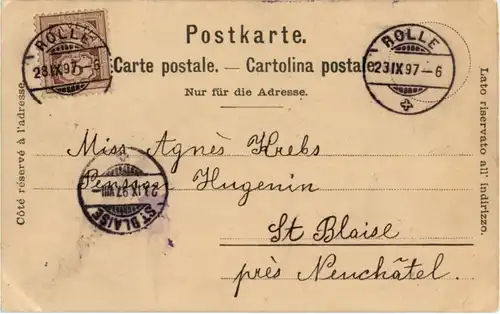 Postkarte.
Carte postale. — Cartolina postale
Nur für die Adresse.
Côté réservé à l'adresse.
Lato riservato all' indirizzo.
ROLLE
23 IX 97 – 6
ROLLE
23 IX 97 – 6
Miss Agnès Krebs
Hugenin
St Blaise
près Neuchâtel.
23 IX 97 VIII
ST BLAISE